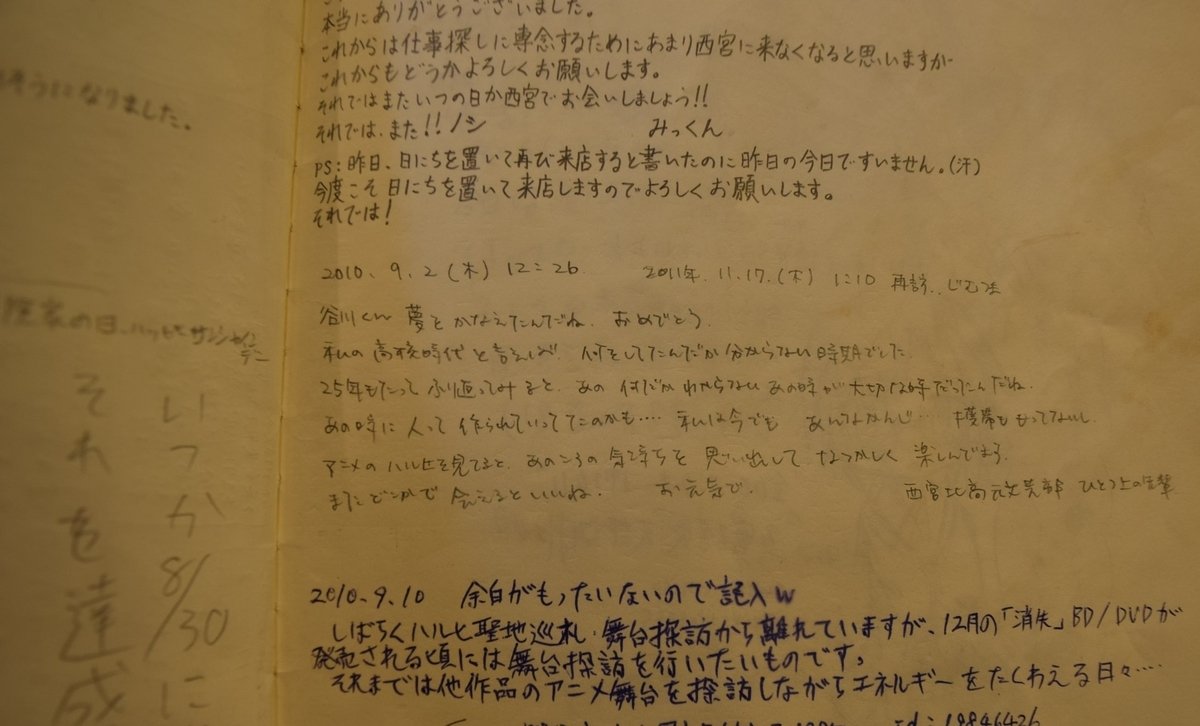 本当にありがとうございました。
これからは仕事探しに専念するためにあまり西宮に来なくなると思いますが
これからもどうかよろしくお願いします。
それではまたいつの日か西宮でお会いしましょう!!
それでは、また!!ノシ みっくん
PS:昨日、日にちを置いて再び来店すると書いたのに昨日の今日ですいません。(汗)
今度こそ日にちを置いて来店しますのでよろしくお願いします。
それでは!
2010、9.2(木) 12:26 2011年.11.17.(木) 1:10 再訪..
谷川くん 夢をかなえたんだね。おめでとう。
私の高校時代と言えば、何をしてたんだか分からない時期でした。
25年もたってふり返ってみると、あの何だかわからないあの時が大切な時だったんだね。
あの時に人って作られていってたのかも…. 私は今でもあんなかんじ… 携帯ももってないし.
アニメのハルヒを見てると、あのころの気持ちを思い出してなつかしく楽しんでます.
またどこかで会えるといいね. お元気で. 西宮北高元文芸部 ひとつ上の先輩
2010.9.10 余白がもったいないので記入w
しばらくハルヒ聖地巡礼・舞台探訪から離れていますが、12月の「消失」BD/DVDが
発売される頃には舞台探訪を行いたいものです。
それまでは他作品のアニメ舞台を探訪しながらエネルギーをたくわえる日々….
id:19846426
そうになりました。
の日、ハッピーサンシャイン
デー
いつか8/30に
それを達成